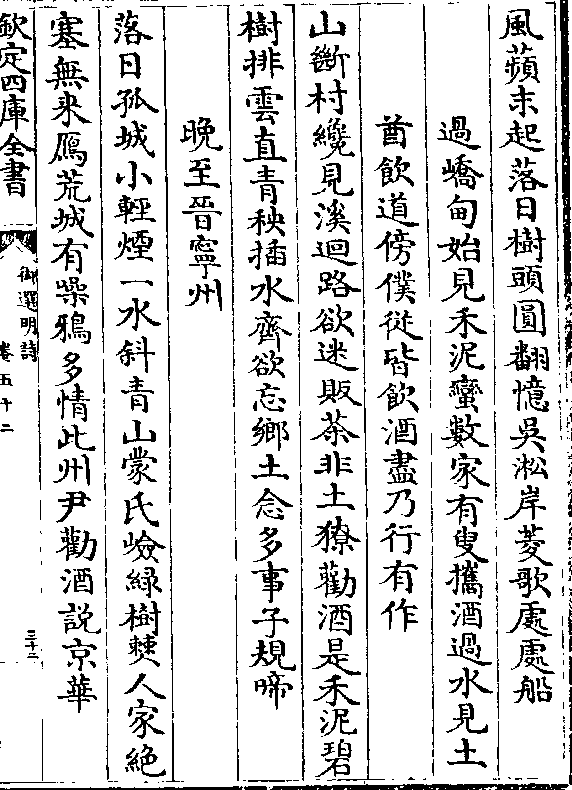 風蘋末起落日樹頭圓翻憶吳淞岸菱歌處處船
過嶠甸始見禾泥蠻數家有叟攜酒過水見土
酋飲道傍僕從皆飲酒盡乃行有作
山斷村纔見溪迴路欲迷販茶非土獠勸酒是禾泥碧
樹排雲直青秧插水齊欲忘鄉土念多事子規啼
晚至晉寧州
落日孤城小輕煙一水斜青山蒙氏嶮綠樹僰人家絶
塞無来鴈荒城有噪鴉多情此州尹勸酒説京華
欽定四庫全書
御選明詩
卷五十二
三十二